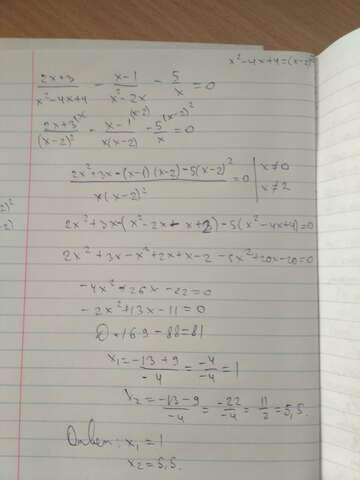 x²-4x+4=(x-2)²
(2x+3)/(x²-4x+4) - (x-1)/(x²-2x) - 5/x = 0
(2x+3)/(x-2)² - (x-1)/(x(x-2)) - 5/x = 0
(2x²+3x-(x-1)(x-2)-5(x-2)²)/(x(x-2)²) = 0 | x≠0
x≠2
2x²+3x-(x²-2x-x+2)-5(x²-4x+4)=0
2x²+3x-x²+2x+x-2-5x²+20x-20=0
-4x²+26x-22=0
-2x²+13x-11=0
D=169-88=81
x₁=(-13+9)/-4=-4/-4=1
x₂=(-13-9)/-4=-22/-4=11/2=5,5.
Ответ: x₁=1
x₂=5,5.